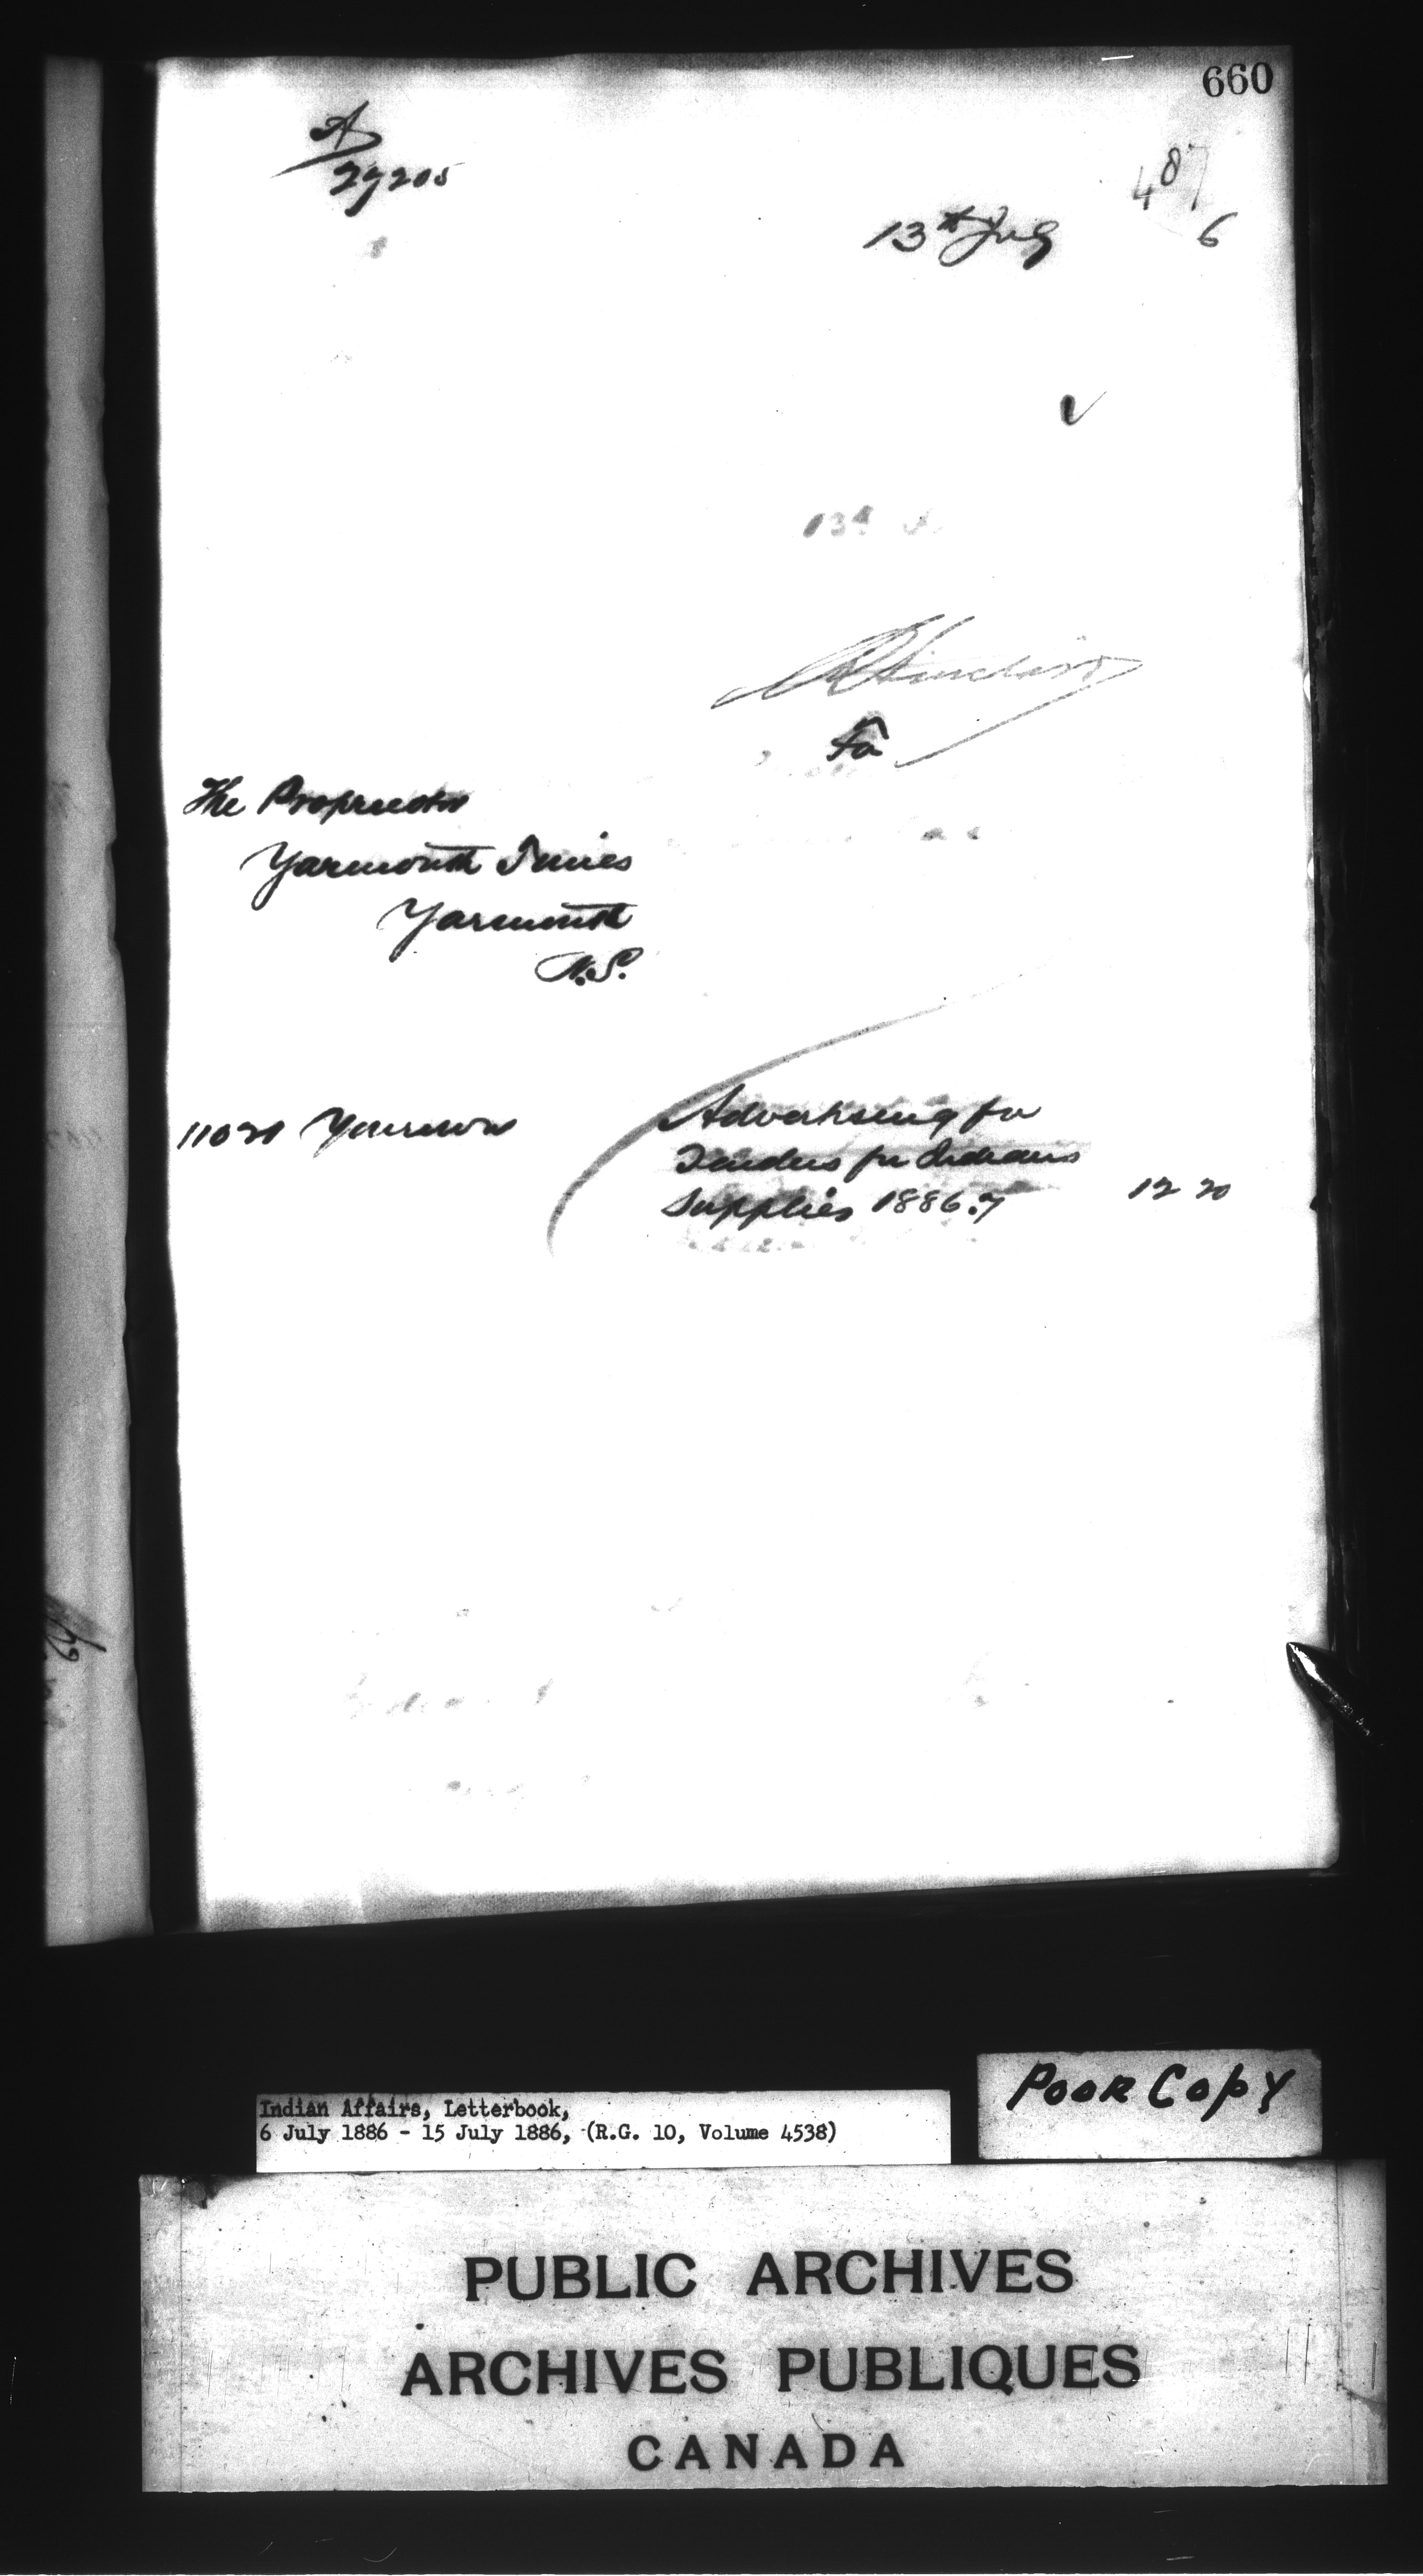 660
A
27205
487
13th July 6
For
The Proprietor
Yarmouth Times
Yarmouth
N.S.
Advertising for
Tenders for Indians
Supplies 1886.7 12 20
Poor Copy
Indian Affairs, Letterbook,
6 July 1886 - 15 July 1886, (R.G. 10, Volume 4538)
PUBLIC ARCHIVES
ARCHIVES PUBLIQUES
CANADA